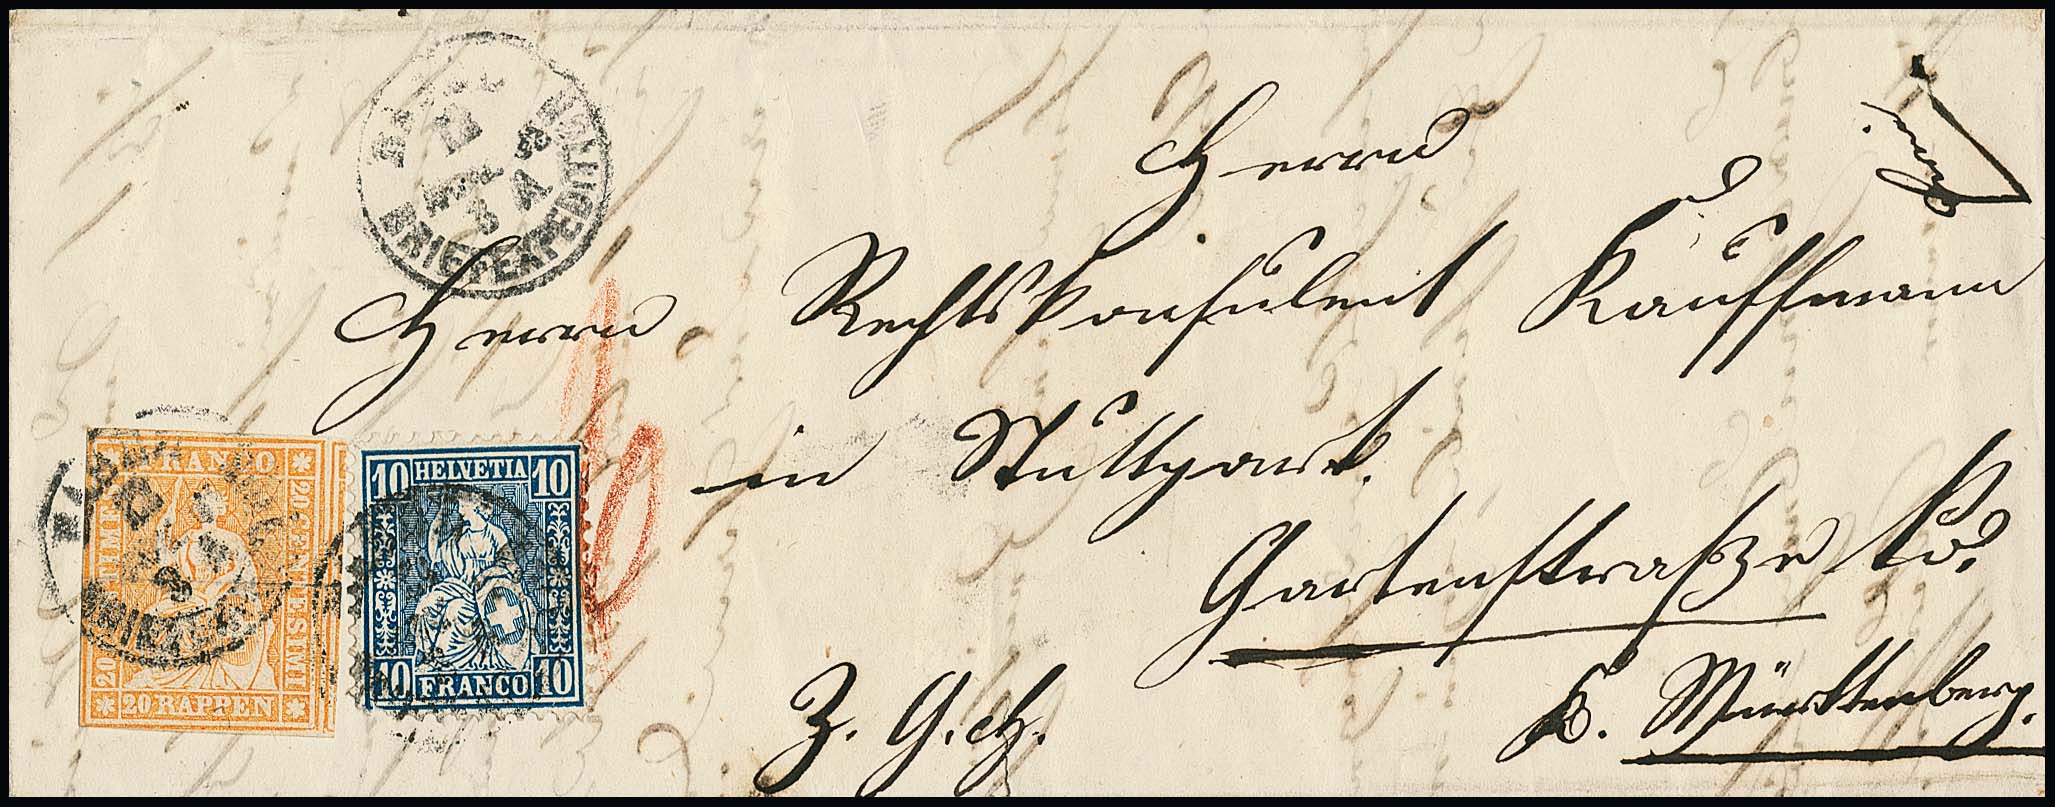 Herrn
Herrn Rechtskonsulent Kauffmann
in Stuttgart.
Gartenstraße
Z. G. ch.
K. Württemberg.
franco
BASEL
BRIEFEXPEDITION
FRANCO
20 CENTESIMI
20 RAPPEN
10 HELVETIA 10
10 FRANCO 10